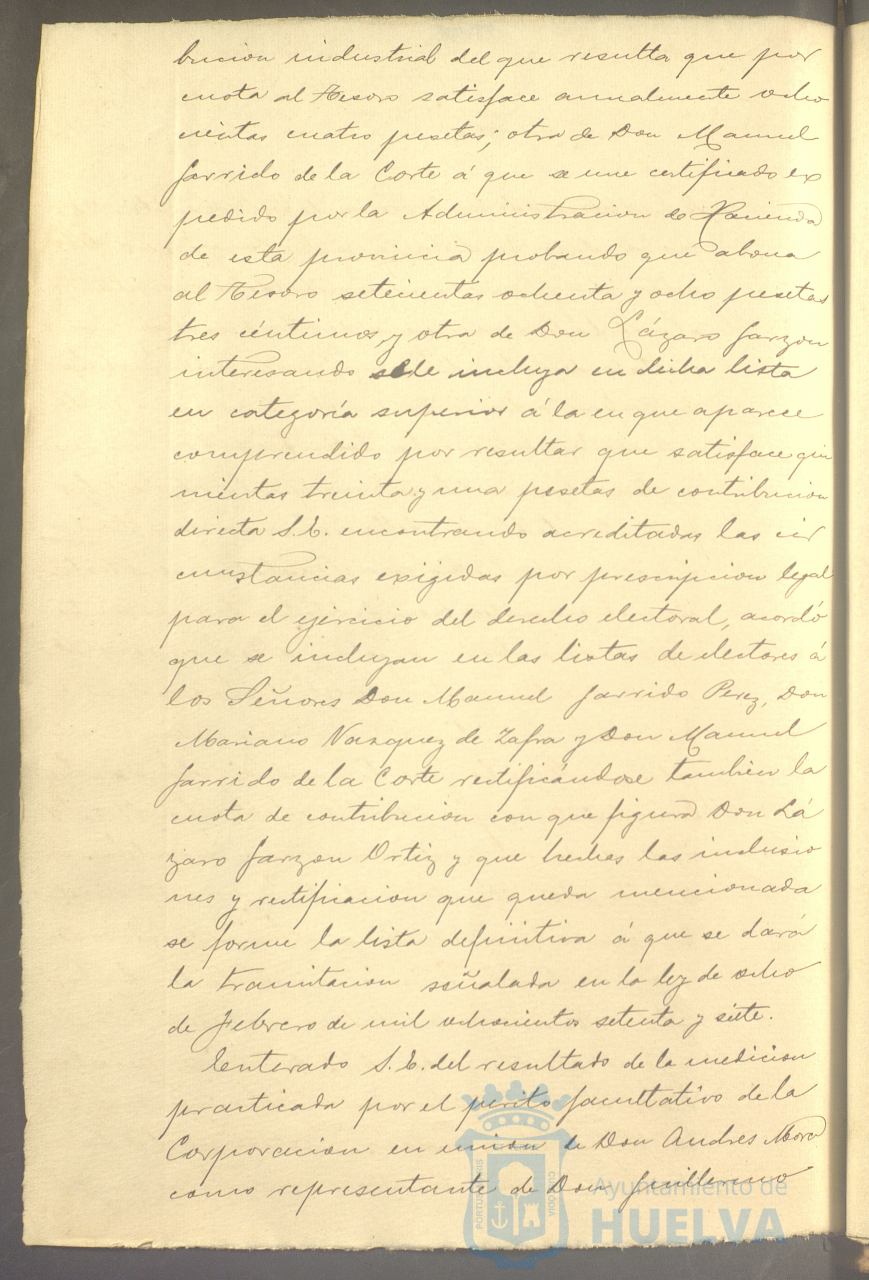 bucion industrial del que resulta que por
cuota al Tesoro satisface anualmente ocho
cientas cuatro pesetas; otra de Don Manuel
Garrido de la Corte á que se une certificado ex
pedido por la Administracion de Hacienda
de esta provincia probando que abona
al Tesoro setecientas ochenta y ocho pesetas
tres céntimos, y otra de Don Lázaro Garzon
interesando se le incluya en dicha lista
en categoría superior á la en que aparece
comprendido por resultar que satisface qui
nientas treinta y una pesetas de contribucion
directa S. E. encontrando acreditadas las cir
cunstancias exigidas por prescripcion legal
para el ejercicio del derecho electoral, acordó
que se incluyan en las listas de electores á
los Señores Don Manuel Garrido Perez, Don
Mariano Vazquez de Zafra y Don Manuel
Garrido de la Corte rectificándose tambien la
cuota de contribucion con que figura Don Lá
zaro Garzon Ortiz y que hechas las inclusio
nes y rectificacion que queda mencionada
se forme la lista definitiva á que se dará
la tramitacion señalada en la ley de ocho
de Febrero de mil ochocientos setenta y siete.
Enterado S. E. del resultado de la medicion
practicada por el perito facultativo de la
Corporacion en union de Don Andres Mora
como representante de Don Guillermo
Ayuntamiento de
HUELVA